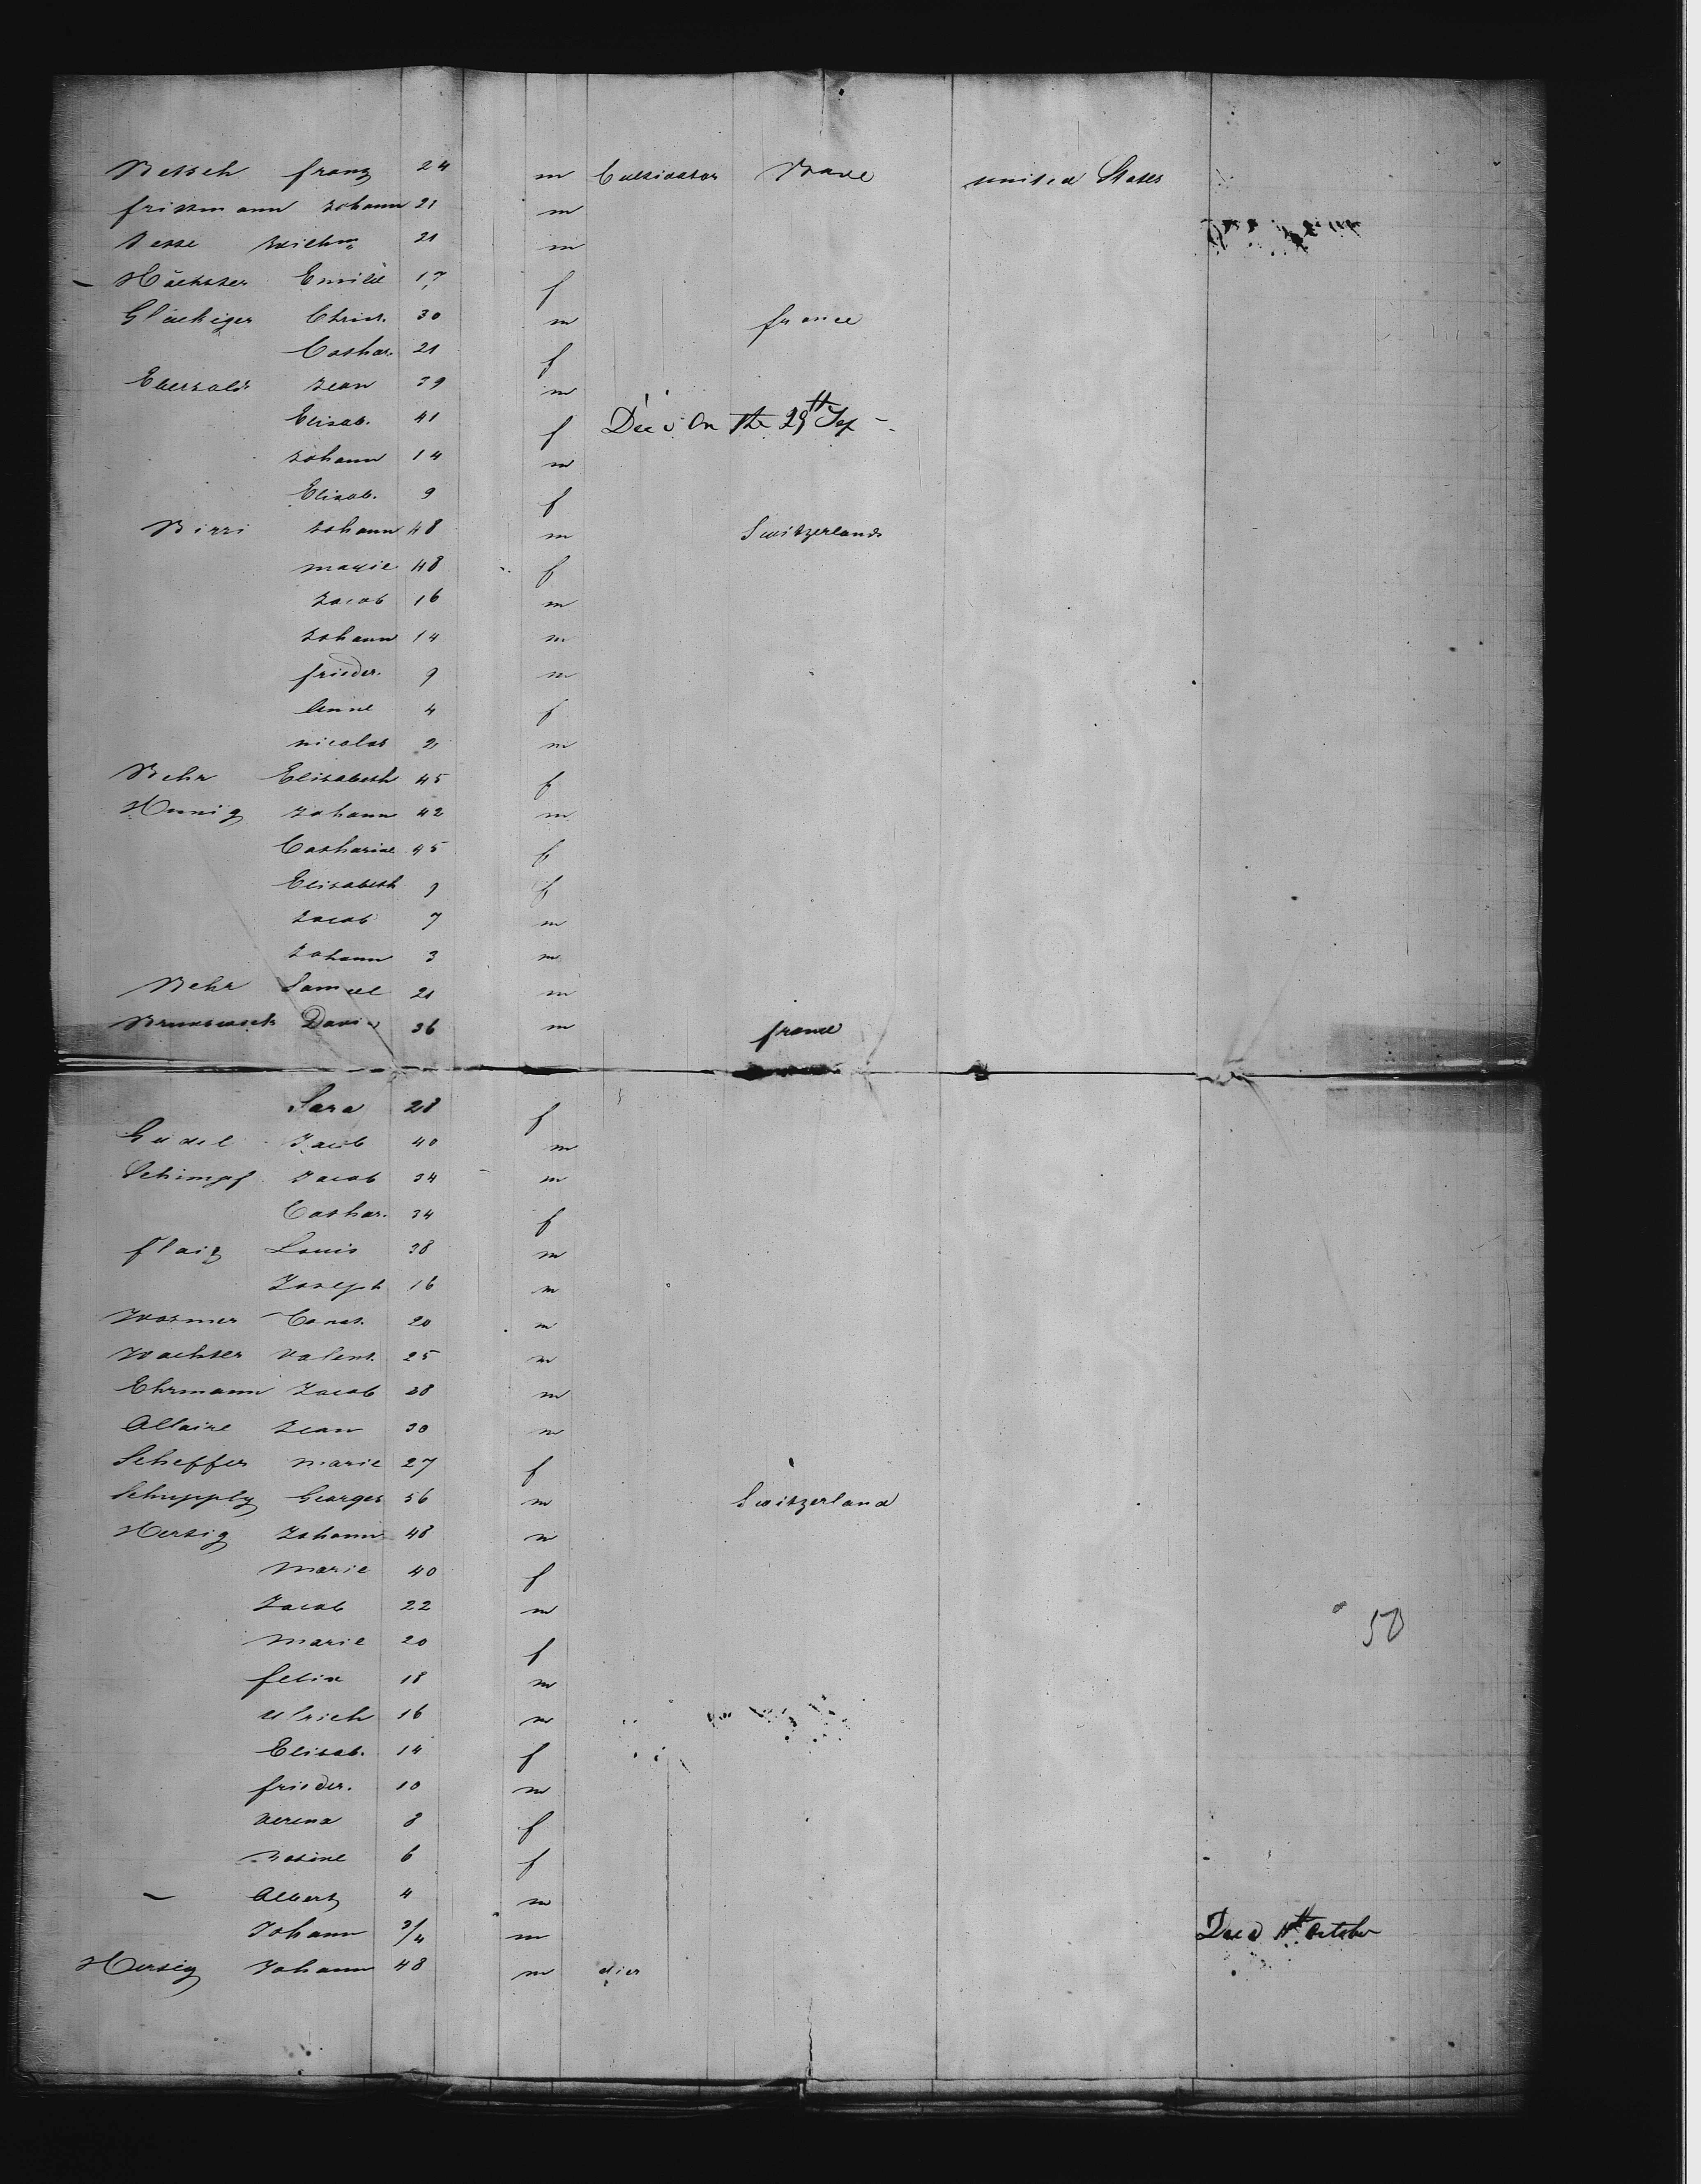 Betsch franz 24 m Cultivator Bade united States
frissmann Johann 21 m
Wilhm 21 m
Emilie 17 f
Glückiger Christ. 30 m france
Cathar. 21 f
Jean 39 m
Elisab. 41 f Died On the 29th Sep
Johann 14 m
Elisab. 9 f
Birri Johann 48 m Switzerland
marie 48 f
Jacob 16 m
Johann 14 m
frieder. 9 m
Anne 4 f
nicolas 2 m
Behr Elisabeth 45 f
Hunig Johann 42 m
Catharine 45 f
Elisabeth 9 f
Jacob 7 m
Johann 3 m
Behr Samuel 21 m
David 36 m france
Sara 28 f
Jacob 40 m
Schimpf Jacob 34 m
Cathar. 34 f
flaig Louis 38 m
Joseph 16 m
Wormer Const. 20 m
Wachter Valent. 25 m
Ehrmann Jacob 28 m
Allaire Jean 30 m
Scheffer marie 27 f
Schupply Georges 56 m Switzerland
Hersig Johann 48 m
Marie 40 f
Jacob 22 m
Marie 20 f
50
felix 18 m
Ulrich 16 m
Elisab. 14 f
frieder. 10 m
Verena 8 f
Rosine 6 f
Albert 4 m
Johann 3/4 m Died 11th October
Hersig Johann 48 m